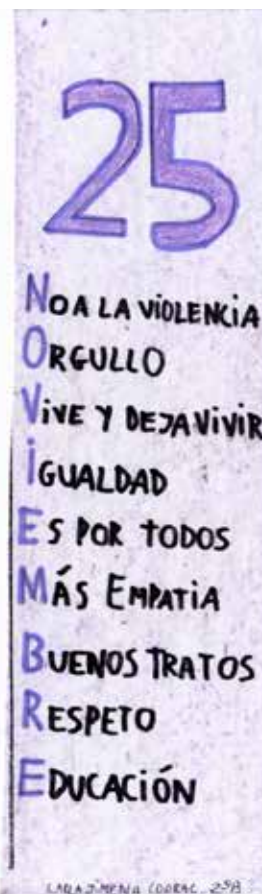 25
NO A LA VIOLENCIA
ORGULLO
ViVE Y DEJA ViViR
iGUALDAD
ES POR TODOS
MÁS EMPATiA
BUENOS TRATOS
RESPETO
EDUCACiÓN